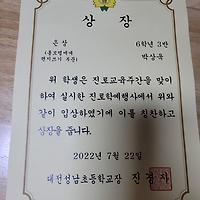 상 장
은상 6학년 3반
(홍보업에게 박상욱
편지쓰기 부문)
위 학생은 진로교육주간을 맞이
하여 실시한 진로학예행사에서 위와
같이 입상하였기에 이를 칭찬하고
상장을 줍니다.
2022년 7월 22일
대전성남초등학교장 진경자